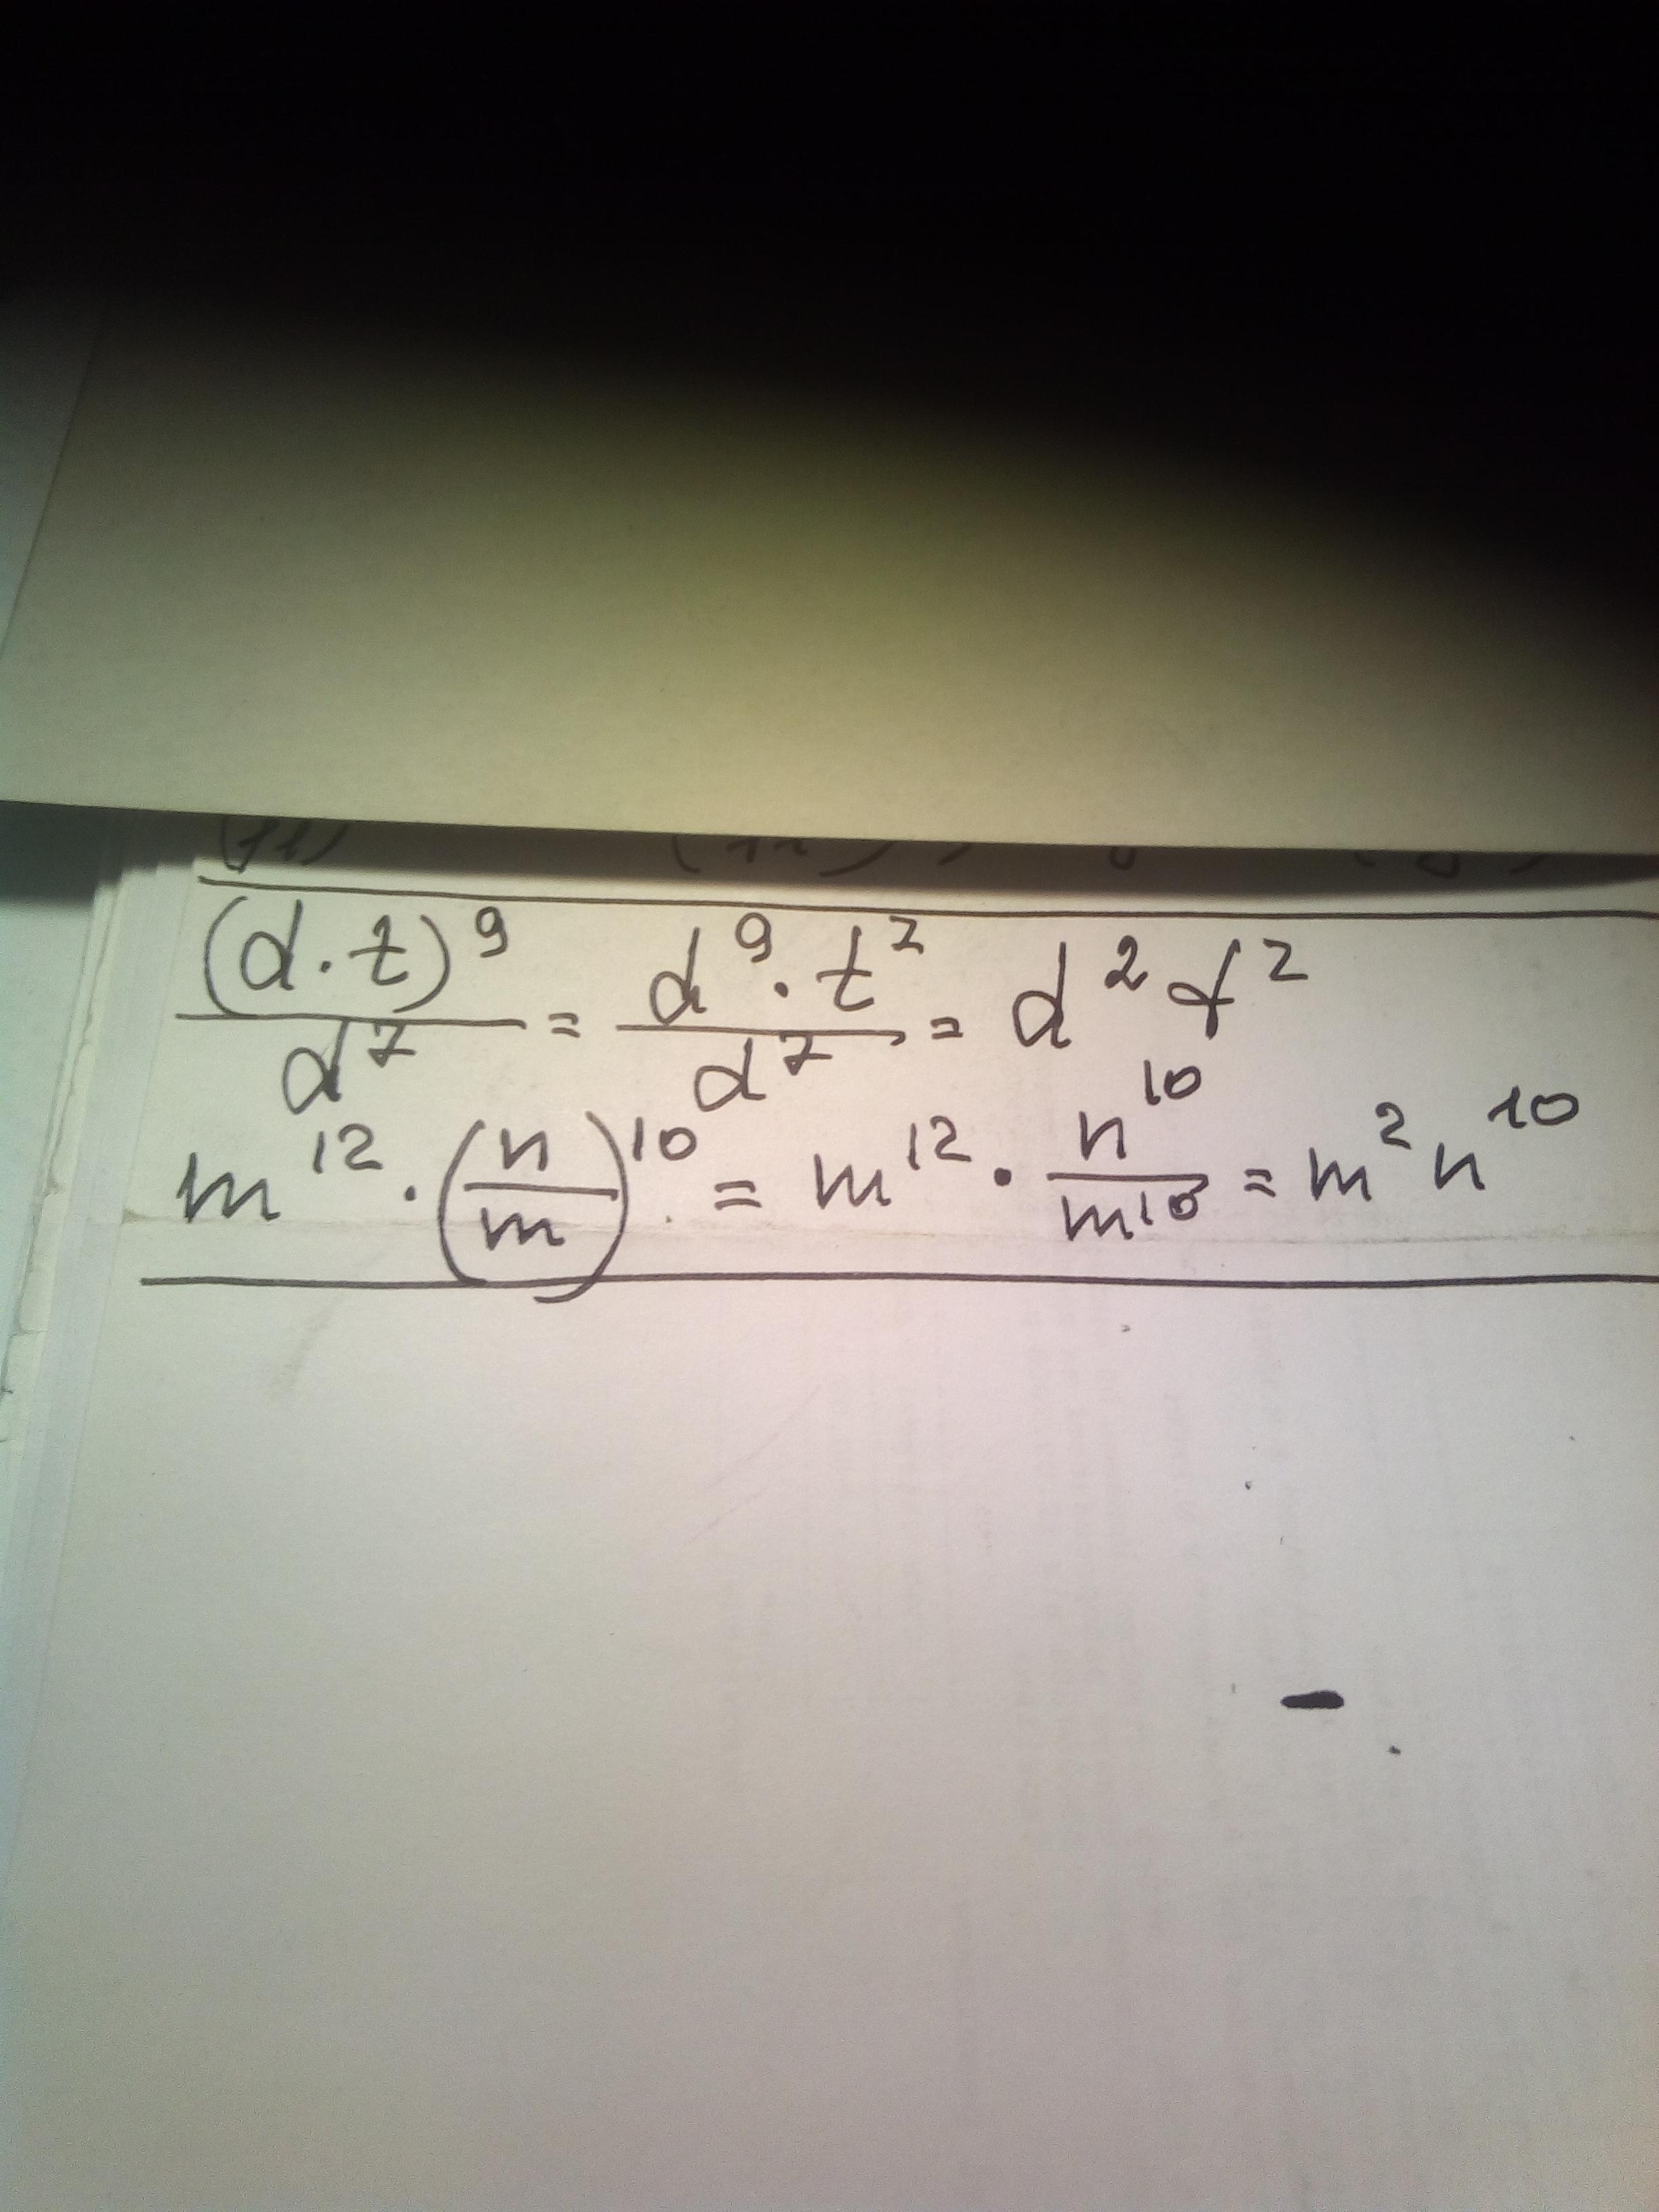 (d·t)⁹/d⁷ = d⁹·t²/d⁷ = d²t²
m¹²·(n/m)¹⁰ = m¹²·n¹⁰/m¹⁰ = m²n¹⁰